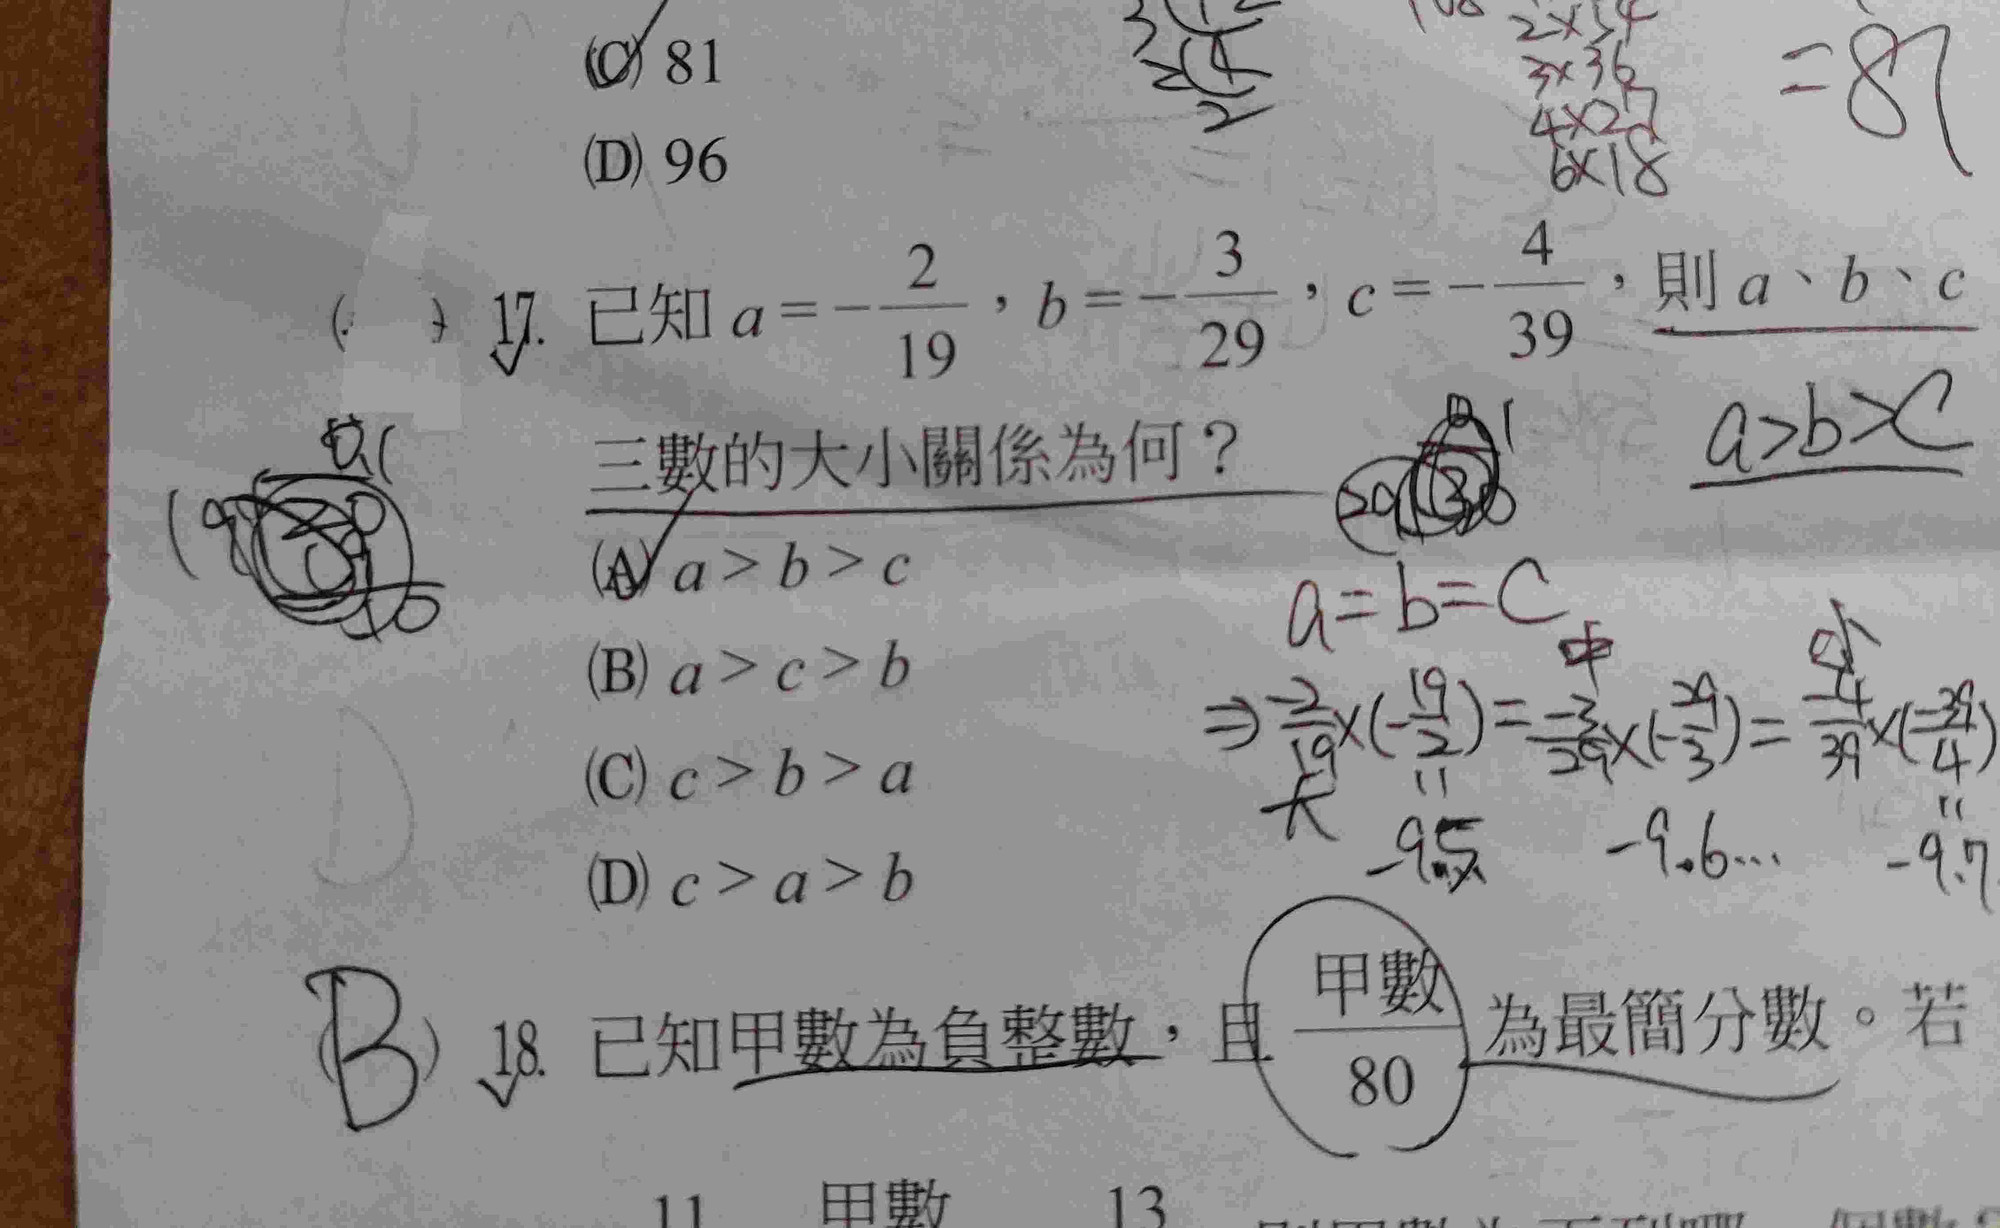 (C) 81
(D) 96
2×54
3×36
4×27
6×18
=87
( ) 17. 已知 a=-2/19，b=-3/29，c=-4/39，則 a、b、c
三數的大小關係為何？
a>b>c
(A) a > b > c
(B) a > c > b
(C) c > b > a
(D) c > a > b
a=b=c
⇒ -2/19×(-19/2)=-3/29×(-29/3)=-4/39×(-39/4)
大 中 小
-9.5 -9.6… -9.7
(B) 18. 已知甲數為負整數，且 甲數/80 為最簡分數。若
11 甲數 13